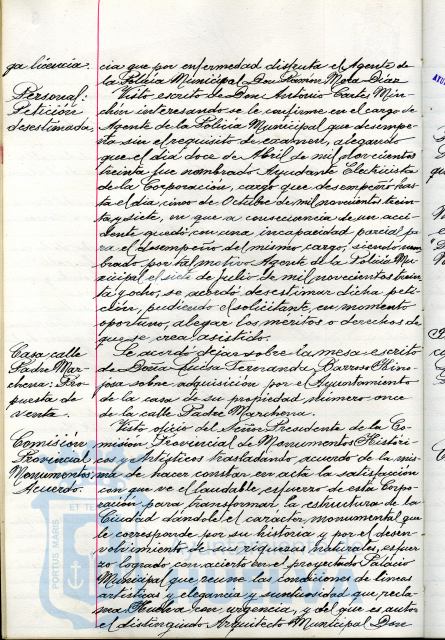 ga licencia.
cia que por enfermedad disfruta el Agente de
la Policía Municipal Don Ramón Mora Díaz
Personal:
Petición
desestimada.
Visto escrito de Don Antonio Cartes Min-
chón interesando se le confirme en el cargo de
Agente de la Policía Municipal que desempe-
ña sin el requisito de examen, alegando
que el día doce de Abril de mil novecientos
treinta fue nombrado Ayudante Electricista
de la Corporación, cargo que desempeñó has-
ta el día cinco de Octubre de mil novecientos trein-
ta y siete, en que a consecuencia de un acci-
dente quedó con una incapacidad parcial pa-
ra el desempeño del mismo cargo, siendo nom-
brado por tal motivo Agente de la Policía Mu-
nicipal el siete de Julio de mil novecientos trein-
ta y ocho, se acordó desestimar dicha peti-
ción, pudiendo el solicitante, en momento
oportuno, alegar los méritos o derechos de
que se crea asistido.
Casa calle
Padre Mar-
chena: Pro-
puesta de
venta.
Se acordó dejar sobre la mesa escrito
de Doña Luisa Fernanda Barroso Hino-
josa sobre adquisición por el Ayuntamiento
de la casa de su propiedad número once
de la calle Padre Marchena.
Comisión
Provincial
Monumentos:
Acuerdo.
Visto oficio del Señor Presidente de la Co-
misión Provincial de Monumentos Históri-
cos y Artísticos trasladando acuerdo de la mis-
ma de hacer constar en acta la satisfacción
con que ve el laudable esfuerzo de esta Corpo-
ración para transformar la estructura de la
Ciudad dándole el carácter monumental que
le corresponde por su historia y por el desen-
volvimiento de sus riquezas naturales, esfuer-
zo logrado con acierto en el proyectado Palacio
Municipal que reune las condiciones de líneas
artísticas y elegancia y suntuosidad que recla-
ma Huelva con urgencia, y del que es autor
el distinguido Arquitecto Municipal Don
PORTUS MARIS
ET TE